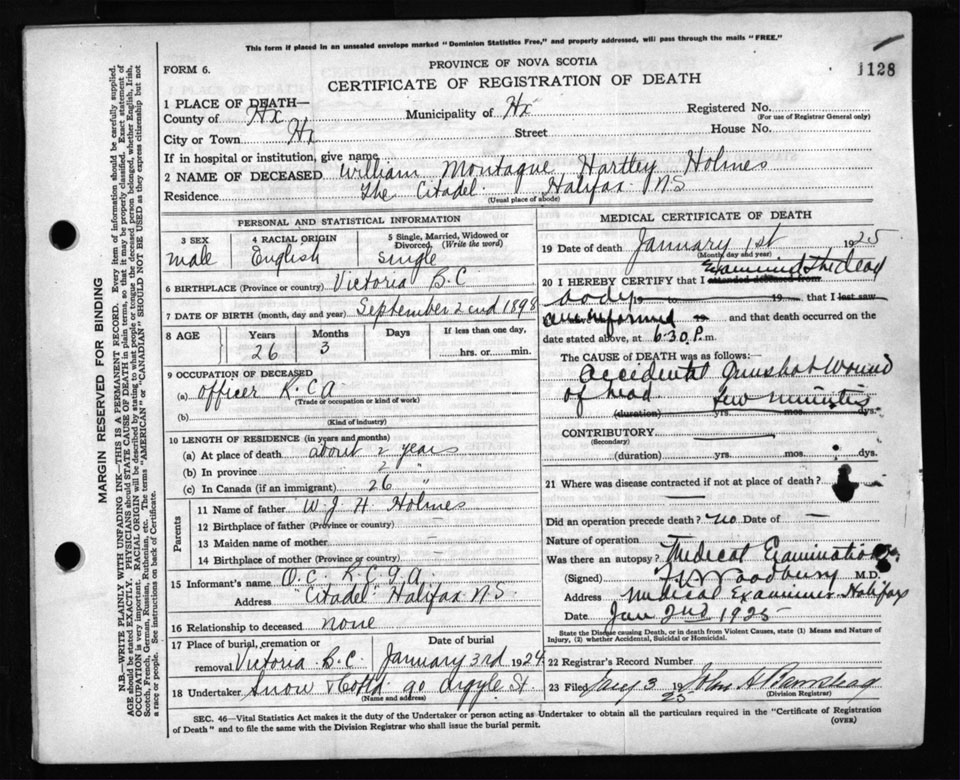 This form if placed in an unsealed envelope marked "Dominion Statistics Free," and properly addressed, will pass through the mails "FREE."
1128
PROVINCE OF NOVA SCOTIA
FORM 6.
CERTIFICATE OF REGISTRATION OF DEATH
1 PLACE OF DEATH—
County of Hx Municipality of Hx Registered No.
(For use of Registrar General only)
City or Town Hx Street House No.
If in hospital or institution, give name
2 NAME OF DECEASED William Montague Hartley Holmes
Residence The Citadel. Halifax NS
(Usual place of abode)
PERSONAL AND STATISTICAL INFORMATION
3 SEX
male
4 RACIAL ORIGIN
English
5 Single, Married, Widowed or
Divorced. (Write the word)
Single
6 BIRTHPLACE (Province or country) Victoria B.C
7 DATE OF BIRTH (month, day and year) September 2nd 1898
8 AGE Years Months Days If less than one day,
26 3 hrs. or min.
9 OCCUPATION OF DECEASED
(a) officer R.C.A
(Trade or occupation or kind of work)
(b)
(Kind of industry)
10 LENGTH OF RESIDENCE (in years and months)
(a) At place of death about 2 years
(b) In province 2 "
(c) In Canada (if an immigrant) 26 "
Parents
11 Name of father W. J. H. Holmes
12 Birthplace of father (Province or country) —
13 Maiden name of mother —
14 Birthplace of mother (Province or country) —
15 Informant's name O.C. R.C.G.A.
Address Citadel Halifax NS.
16 Relationship to deceased none
17 Place of burial, cremation or
removal Victoria B.C.
Date of burial
January 3rd 1924
18 Undertaker Snow & Co Ltd 90 Argyle St
(Name and address)
MEDICAL CERTIFICATE OF DEATH
19 Date of death January 1st 1925
(Month, day and year)
20 I HEREBY CERTIFY that I attended deceased from Examined the dead
body 19 to 19 that I last saw
am informed and that death occurred on
date stated above, at 6.30 P.m.
The CAUSE OF DEATH was as follows:
Accidental Gunshot Wound
of head few minutes
(duration) yrs. mos. dys.
CONTRIBUTORY —
(Secondary)
(duration) yrs. mos. dys.
21 Where was disease contracted if not at place of death?
—
Did an operation precede death? no Date of —
Nature of operation
Was there an autopsy? Medical Examination
(Signed) Woodbury M.D.
Address Medical Examiner Halifax
Date Jan 2nd 1925
State the Disease causing Death, or in death from Violent Causes, state (1) Means and Nature of
Injury, (2) whether Accidental, Suicidal or Homicidal.
22 Registrar's Record Number
23 Filed Jany 3 1925 John A
(Division Registrar)
SEC. 46—Vital Statistics Act makes it the duty of the Undertaker or person acting as Undertaker to obtain all the particulars required in the "Certificate of Registration
of Death" and to file the same with the Division Registrar who shall issue the burial permit.
(OVER)
MARGIN RESERVED FOR BINDING
N.B.—WRITE PLAINLY WITH UNFADING INK—THIS IS A PERMANENT RECORD. Every item of information should be carefully supplied.
AGE should be stated EXACTLY. PHYSICIANS should STATE CAUSE OF DEATH in plain terms, so that it may be properly classified. Exact statement of
OCCUPATION is very important. RACIAL ORIGIN will be described by stating to what people or tongue the deceased person belonged, whether English, Irish,
Scotch, French, German, Russian, Ruthenian, etc. The terms "AMERICAN" or "CANADIAN" SHOULD NOT BE USED as they express citizenship but not
a race or people. See instructions on back of Certificate.